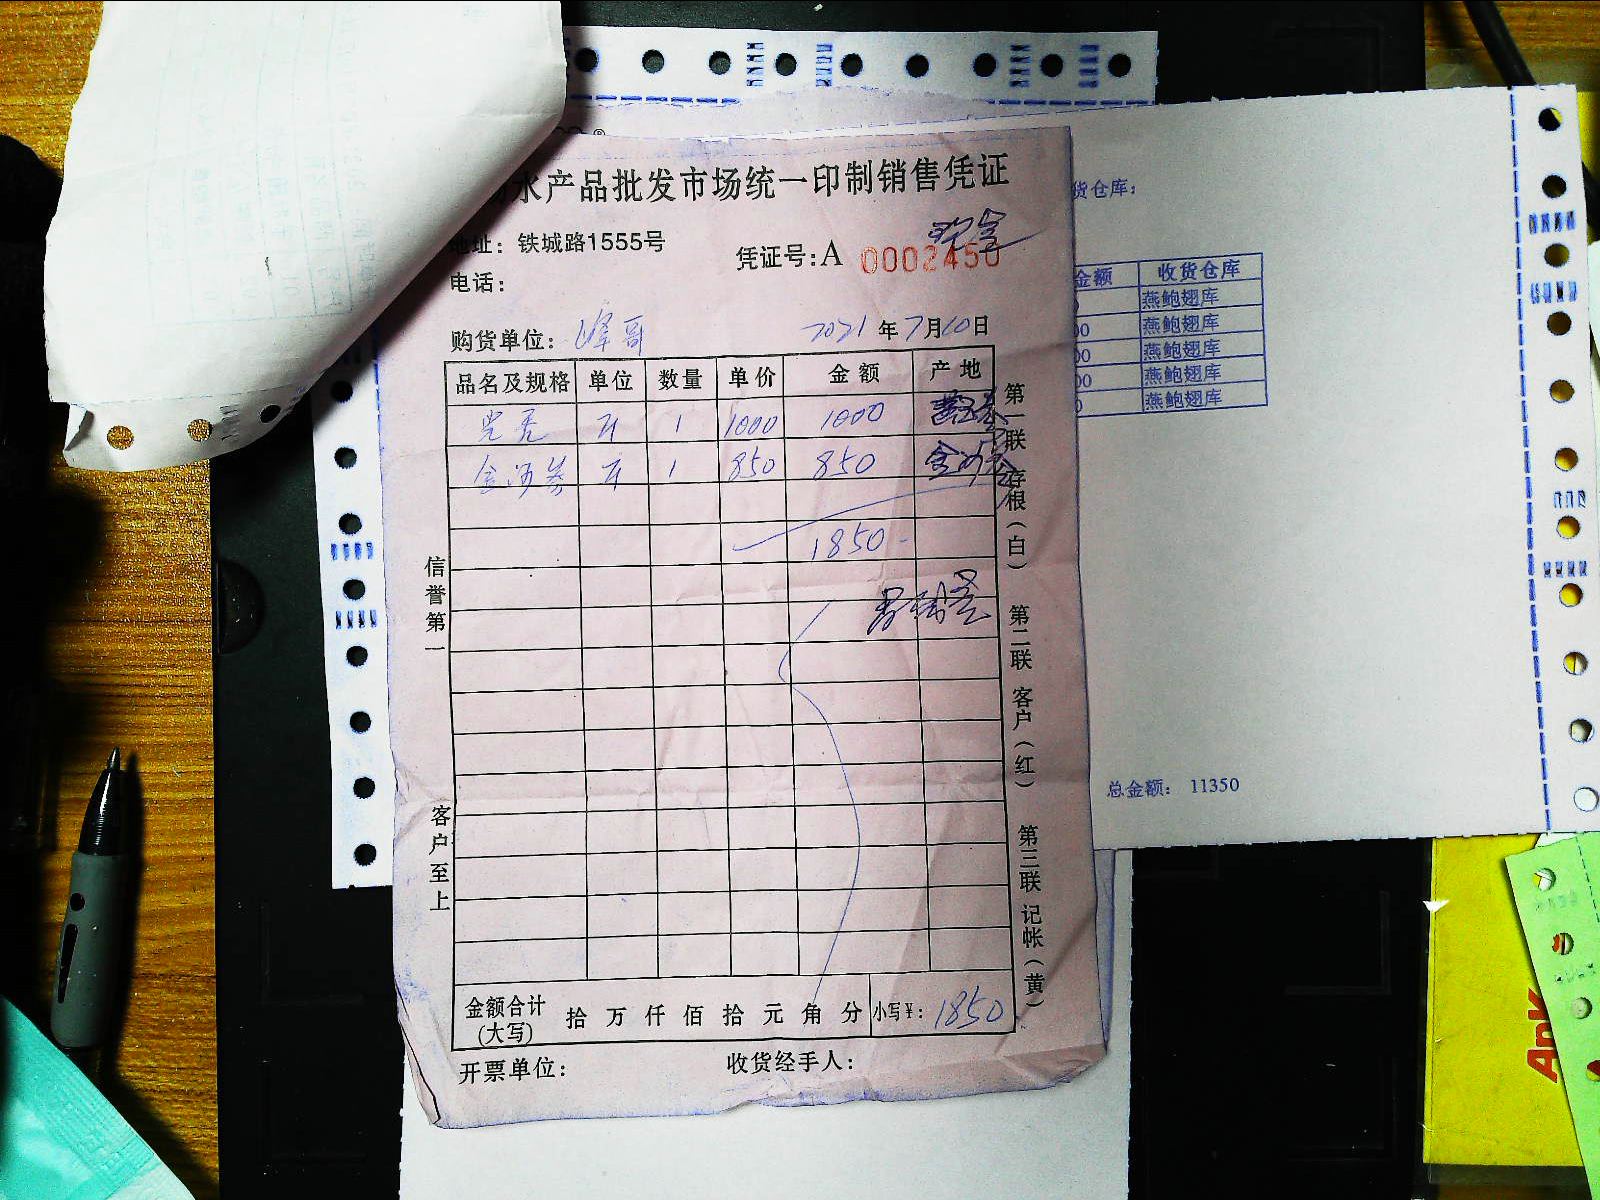 水产品批发市场统一印制销售凭证
地址：铁城路1555号
凭证号：A 0002450
电话：
购货单位：峰哥
2021年7月10日
品名及规格 单位 数量 单价 金额 产地
1 1000 1000
1 850 850
1850
信誉第一
客户至上
第一联 存根（白）
第二联 客户（红）
第三联 记帐（黄）
金额合计（大写） 拾 万 仟 佰 拾 元 角 分 小写¥：1850
开票单位：
收货经手人：
货仓库：
金额 收货仓库
燕鲍翅库
燕鲍翅库
燕鲍翅库
燕鲍翅库
燕鲍翅库
总金额： 11350